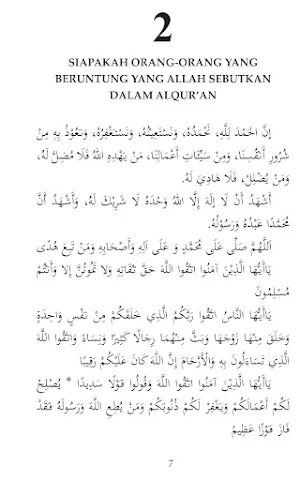 2
SIAPAKAH ORANG-ORANG YANG
BERUNTUNG YANG ALLAH SEBUTKAN
DALAM ALQUR’AN
إِنَّ الْحَمْدَ لِلَّهِ، نَحْمَدُهُ، وَنَسْتَعِيْنُهُ، وَنَسْتَغْفِرُهُ، وَنَعُوْذُ بِهِ مِنْ
شُرُوْرِ أَنْفُسِنَا، وَمِنْ سَيِّئَاتِ أَعْمَالِنَا، مَنْ يَهْدِهِ اللهُ فَلَا مُضِلَّ لَهُ،
وَمَنْ يُضْلِلْ، فَلَا هَادِيَ لَهُ.
أَشْهَدُ أَنْ لَا إِلَهَ إِلَّا اللهُ وَحْدَهُ لَا شَرِيْكَ لَهُ، وَأَشْهَدُ أَنَّ
مُحَمَّدًا عَبْدُهُ وَرَسُوْلُهُ.
اَللَّهُمَّ صَلِّى عَلَى مُحَمَّدٍ وَ عَلَى آلِهِ وَأَصْحَابِهِ وَمَنْ تَبِعَ هُدَى
يَاأَيُّهَا الَّذِيْنَ آمَنُوا اتَّقُوا اللَّهَ حَقَّ تُقَاتِهِ وَلَا تَمُوْتُنَّ إِلا وَأَنْتُمْ
مُسْلِمُوْنَ
يَاأَيُّهَا النَّاسُ اتَّقُوا رَبَّكُمُ الَّذِي خَلَقَكُمْ مِنْ نَفْسٍ وَاحِدَةٍ
وَخَلَقَ مِنْهَا زَوْجَهَا وَبَثَّ مِنْهُمَا رِجَالًا كَثِيْرًا وَنِسَاءً وَاتَّقُوا اللَّهَ
الَّذِي تَسَاءَلُوْنَ بِهِ وَالْأَرْحَامَ إِنَّ اللَّهَ كَانَ عَلَيْكُمْ رَقِيْبًا
يَاأَيُّهَا الَّذِيْنَ آمَنُوا اتَّقُوا اللَّهَ وَقُوْلُوا قَوْلًا سَدِيْدًا * يُصْلِحْ
لَكُمْ أَعْمَالَكُمْ وَيَغْفِرْ لَكُمْ ذُنُوْبَكُمْ وَمَنْ يُطِعِ اللَّهَ وَرَسُوْلَهُ فَقَدْ
فَازَ فَوْزًا عَظِيْمً
7